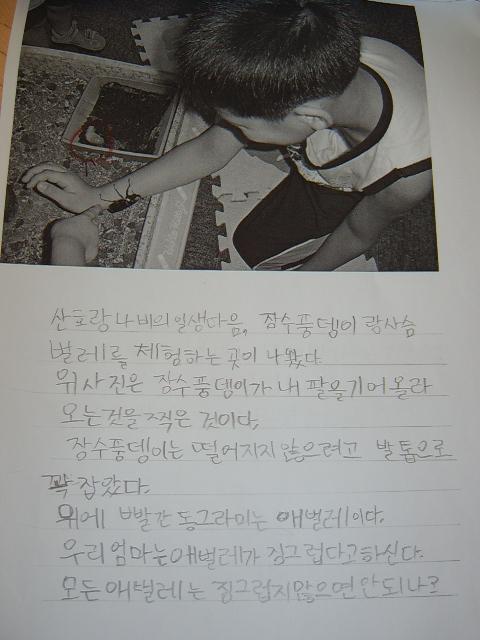 산호랑나비의일생다음, 장수풍뎅이랑사슴
벌레를 체험하는 곳이 나왔다.
위사진은 장수풍뎅이가 내 팔을기어올라
오는것을 찍은 것이다.
장수풍뎅이는 떨어지지않으려고 발톱으로
꽉잡았다.
위에 빨간 동그라미는 애벌레이다.
우리엄마는애벌레가 징그럽다고하신다.
모든 애벌레는 징그럽지않으면안되나?